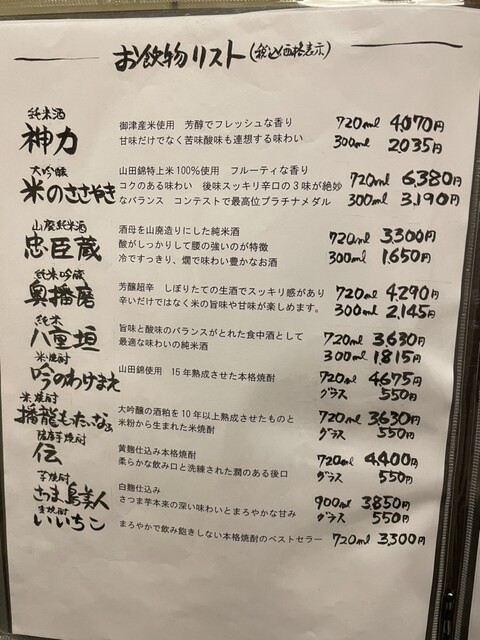 お飲物リスト(税込価格表示)
純米酒
神力
御津産米使用 芳醇でフレッシュな香り
甘味だけでなく苦味酸味も連想する味わい
720ml 4,070円
300ml 2,035円
大吟醸
米のささやき
山田錦特上米100%使用 フルーティな香り
コクのある味わい 後味スッキリ辛口の3味が絶妙
なバランス コンテストで最高位プラチナメダル
720ml 6,380円
300ml 3,190円
山廃純米酒
忠臣蔵
酒母を山廃造りにした純米酒
酸がしっかりして腰の強いのが特徴
冷ですっきり、燗で味わい豊かなお酒
720ml 3,300円
300ml 1,650円
純米吟醸
奥播磨
芳醸超辛 しぼりたての生酒でスッキリ感があり
辛いだけではなく米の旨味や甘味が楽しめます。
720ml 4,290円
300ml 2,145円
純米
八重垣
旨味と酸味のバランスがとれた食中酒として
最適な味わいの純米酒
720ml 3,630円
300ml 1,815円
米焼酎
吟のわけまえ
山田錦使用 15年熟成させた本格焼酎
720ml 4,675円
グラス 550円
米焼酎
播龍もったいなふ
大吟醸の酒粕を10年以上熟成させたものと
米粉から生まれた米焼酎
720ml 3,630円
グラス 550円
薩摩芋焼酎
伝
黄麹仕込み本格焼酎
柔らかな飲み口と洗練された潤のある後口
720ml 4,400円
グラス 550円
芋焼酎
さつま島美人
白麹仕込み
さつま芋本来の深い味わいとまろやかな甘み
900ml 3,850円
グラス 550円
麦焼酎
いいちこ
まろやかで飲み飽きしない本格焼酎のベストセラー
720ml 3,300円